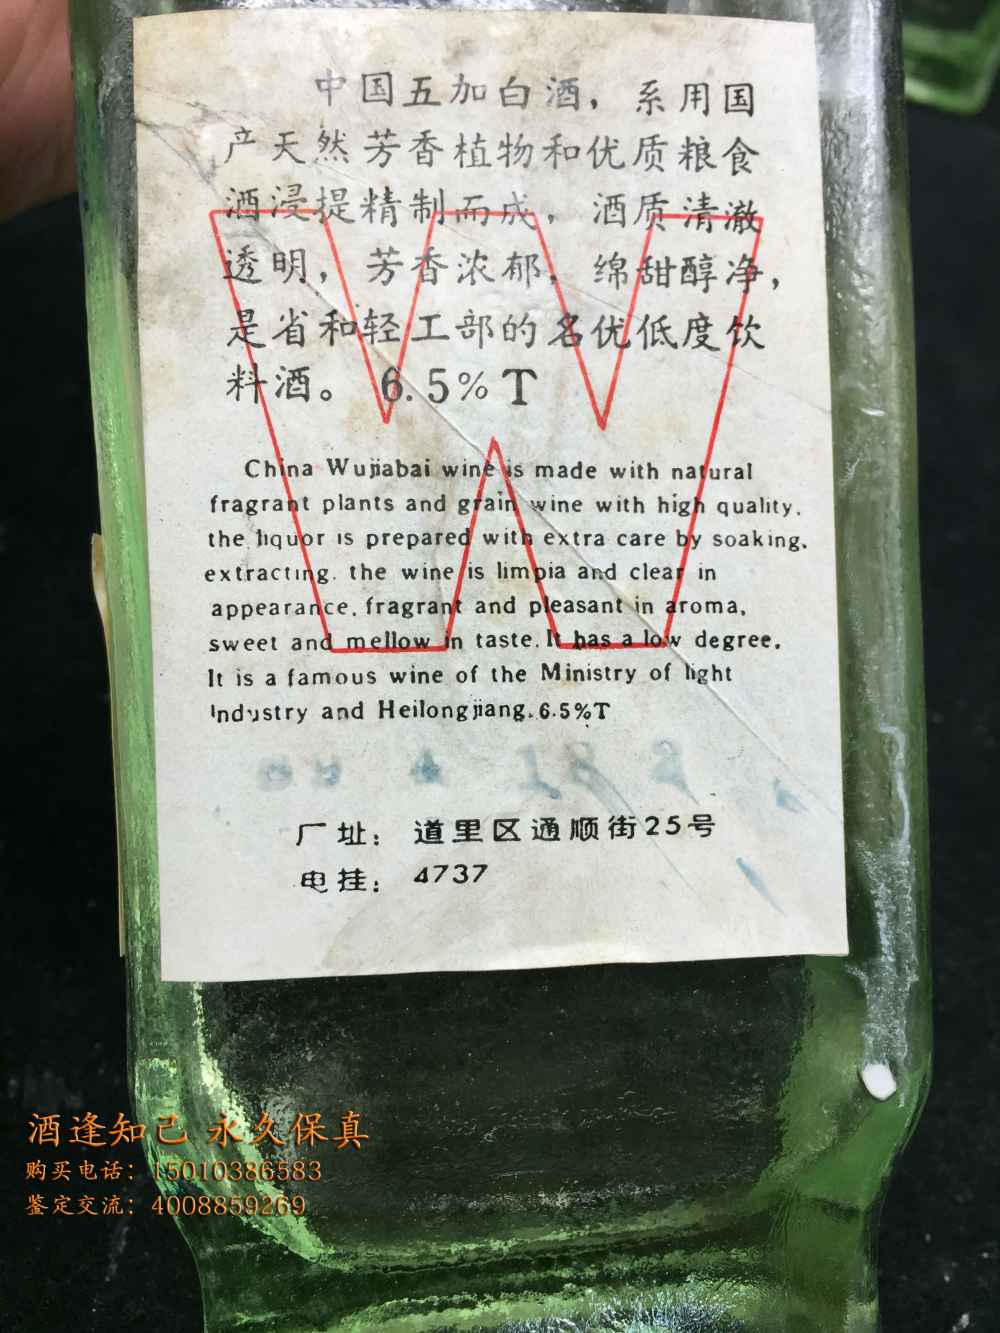 中国五加白酒，系用国
产天然芳香植物和优质粮食
酒浸提精制而成，酒质清澈
透明，芳香浓郁，绵甜醇净，
是省和轻工部的名优低度饮
料酒。6.5%T
China Wujiabai wine is made with natural
fragrant plants and grain wine with high quality.
the liquor is prepared with extra care by soaking.
extracting. the wine is limpia and clear in
appearance, fragrant and pleasant in aroma,
sweet and mellow in taste. It has a low degree.
It is a famous wine of the Ministry of light
Industry and Heilongjiang. 6.5%T
厂址：道里区通顺街25号
电挂：4737
酒逢知己 永久保真
购买电话：15010386583
鉴定交流：4008859269